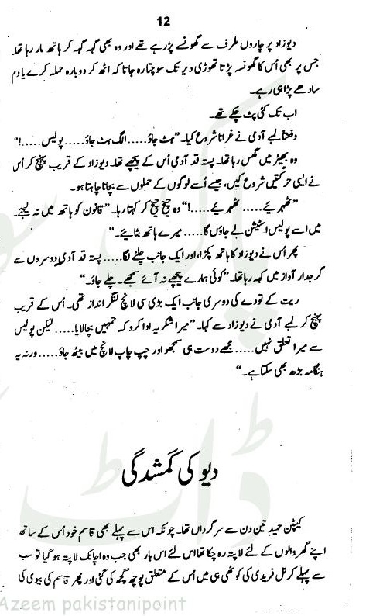 12
دیوزاد پر چاروں طرف سے گھونسے پڑ رہے تھے اور وہ بھی گہہ گہہ کر ہاتھ مار رہا تھا۔
جس پر بھی اُس کا گھونسہ پڑتا تھوڑی دیر تک سوچتا رہ جاتا کہ اٹھ کر دوبارہ حملہ کرے یا دم
سادھے پڑا ہی رہے۔
اب تک کئی پٹ چکے تھے۔
دفعتاً لمبے آدمی نے غرانا شروع کیا۔ "ہٹ جاؤ.....الگ ہٹ جاؤ.....پولیس.....!"
وہ بھیڑ میں گھس رہا تھا۔ پستہ قد آدمی اُس کے پیچھے تھا۔ دیوزاد کے قریب پہنچ کر اُس
نے ایسی حرکتیں شروع کیں، جیسے اُسے لوگوں کے حملوں سے بچانا چاہتا ہو۔
"ٹھہریئے.....ٹھہریئے.....!" وہ چیخ چیخ کر کہتا رہا۔ "قانون کو ہاتھ میں نہ لیجئے
میں اسے پولیس اسٹیشن لے جاؤں گا.....میرے ہاتھ بٹائیے۔"
پھر اُس نے دیوزاد کا ہاتھ پکڑا اور ایک جانب چلنے لگا.....پستہ قد آدمی دوسروں سے
گرجدار آواز میں کہہ رہا تھا۔ "کوئی ہمارے پیچھے نہ آئے سمجھے۔ چلے جاؤ۔"
ریت کے تودے کی دوسری جانب ایک بڑی سی لانچ لنگر انداز تھی۔ اُس کے قریب
پہنچ کر لمبے آدمی نے دیوزاد سے کہا۔ "میرا شکریہ ادا کرو کہ تمہیں بچا لایا.....لیکن پولیس
سے میرا تعلق نہیں.....مجھے دوست ہی سمجھو اور چپ چاپ لانچ میں بیٹھ جاؤ.....ورنہ یہ
ہنگامہ بڑھ بھی سکتا ہے۔"
دیو کی گمشدگی
کیپٹن حمید تین دن سے سرگرداں تھا۔ چونکہ اس سے پہلے بھی قاسم خود اُس کے ساتھ
اپنے گھر والوں کے لئے لاپتہ رہ چکا تھا اس لئے اس بار بھی جب وہ اچانک لاپتہ ہو گیا تو سب
سے پہلے کرنل فریدی کی کوٹھی ہی میں اُس کے متعلق پوچھ گچھ کی گئی اور پھر قاسم کی بیوی کی
Azeem pakistanipoint